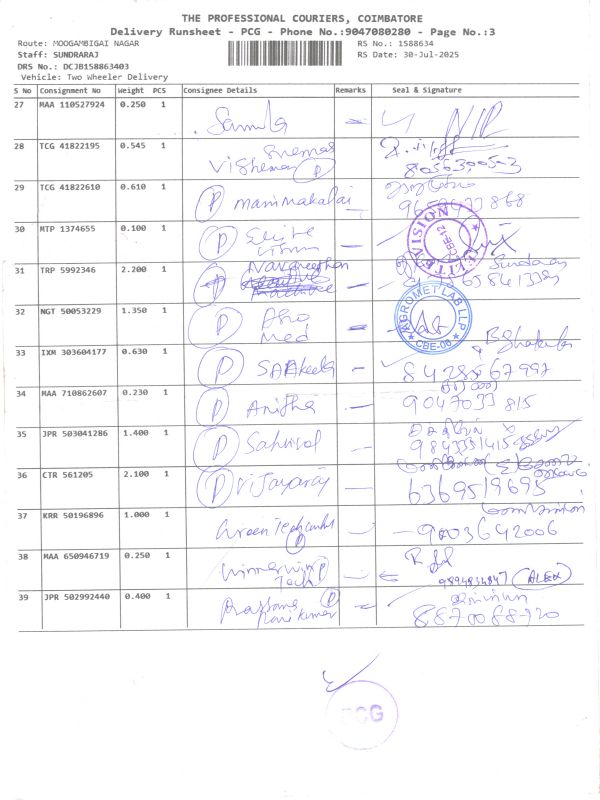 THE PROFESSIONAL COURIERS, COIMBATORE
Delivery Runsheet - PCG - Phone No.:9047080280 - Page No.:3
Route: MOOGAMBIGAI NAGAR
Staff: SUNDRARAJ
DRS No.: DCJB158863403
Vehicle: Two Wheeler Delivery
RS No.: 1588634
RS Date: 30-Jul-2025
S No Consignment No Weight PCS Consignee Details Remarks Seal & Signature
27 MAA 110527924 0.250 1
28 TCG 41822195 0.545 1 P 8056300523
29 TCG 41822610 0.610 1 P manimakalai
30 MTP 1374655 0.100 1 P Elite ELITEVISION CBE-12
31 TRP 5992346 2.200 1 Navaneethan Sundaram
32 NGT 50053229 1.350 1 P Med AGROMET LAB LLP CBE-06
33 IXM 303604177 0.630 1 P Shakeela B Shakila 8428867997
34 MAA 710862607 0.230 1 P Anitha 9047033815
35 JPR 503041286 1.400 1 P 9843351415
36 CTR 561205 2.100 1 P Vijayaraj 6369519695
37 KRR 50196896 1.000 1 Green Tech P 9003642006
38 MAA 650946719 0.250 1 Winnerwing Tech 9894834847 (ALEX)
39 JPR 502992440 0.400 1 P kumar 8870088920
PCG